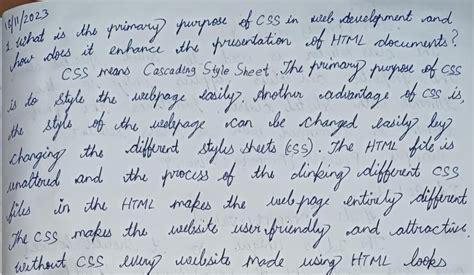 18/11/2023
1. What is the primary purpose of CSS in web development and
how does it enhance the presentation of HTML documents?
CSS means Cascading Style Sheet. The primary purpose of CSS
is to style the webpage easily. Another advantage of CSS is,
the style of the webpage can be changed easily by
changing the different styles sheets (CSS). The HTML file is
unaltered and the process of the linking different CSS
files in the HTML makes the webpage entirely different
The CSS makes the website user-friendly and attractive.
without CSS every website made using HTML looks